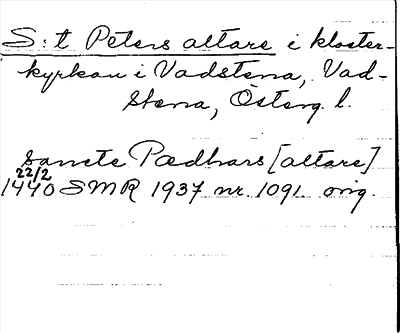 S:t Peters altare i kloster-
kyrkan i Vadstena, Vad-
stena, Österg. l.
sancte Pædhars [altare]
22/2
1440 SMR 1937 nr. 1091 orig.